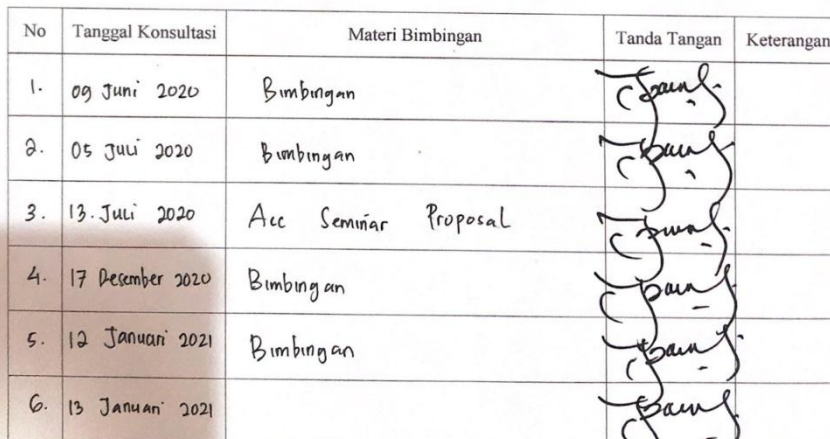 No Tanggal Konsultasi Materi Bimbingan Tanda Tangan Keterangan
1. 09 Juni 2020 Bimbingan
2. 05 Juli 2020 Bimbingan
3. 13. Juli 2020 Acc Seminar Proposal
4. 17 Desember 2020 Bimbingan
5. 12 Januari 2021 Bimbingan
6. 13 Januari 2021